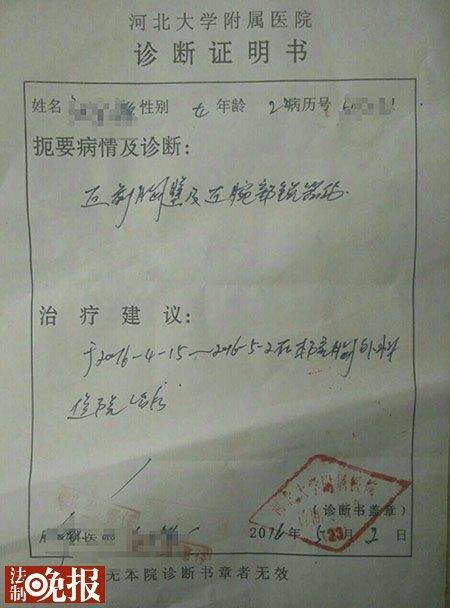 河北大学附属医院
诊断证明书
姓名 性别 女 年龄 2 病历号
扼要病情及诊断:
右侧胸壁及右腕部锐器伤.
治疗建议:
于2016-4-15~2016-5-2在本院胸外科
住院治疗
科 医
(诊断书盖章)
2016年 5月 2日
河北大学附属医院
无本院诊断书章者无效
法制晚报